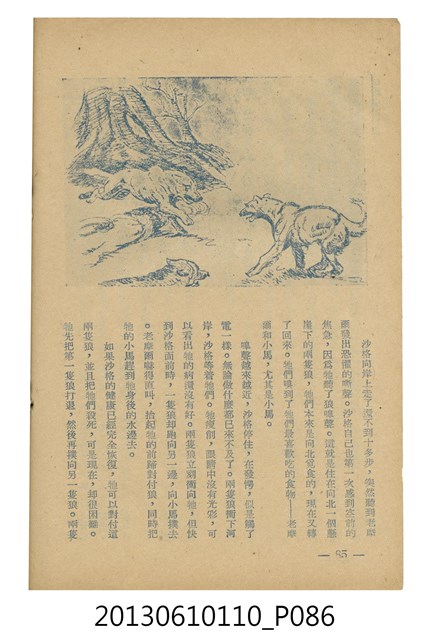 沙格向岸上走了還不到十多步，突然聽到老摩
爾發出恐懼的嘶聲。沙格自己也第一次感到空前的
焦急，因爲牠聽了狼嘷聲。這就是住在向北一個懸
崖下的兩隻狼，牠們本來是向北覓食的，現在又轉
了回來。牠們嗅到了牠們最喜歡吃的食物——老摩
爾和小馬，尤其是小馬。
嘷聲越來越近，沙格停住，在發愣，但是觸了
電一樣。無論做什麼都已來不及了。兩隻狼衝下河
岸，沙格等着牠們。牠瘦削，眼睛中沒有光彩，可
以看出牠的病還沒有好。兩隻狼立刻衝向牠，但快
到沙格面前時，一隻狼却跑向另一邊，向小馬撲去
。老摩爾嚇得直叫，抬起牠的前蹄對付狼，同時把
牠的小馬趕到牠身後的水邊去。
如果沙格的健康已經完全恢復，牠可以對付這
兩隻狼，並且把牠們殺死，可是現在，却很困難。
牠先把第一隻狼打退，然後再撲向另一隻狼。兩隻
— 85 —
20130610110_P086